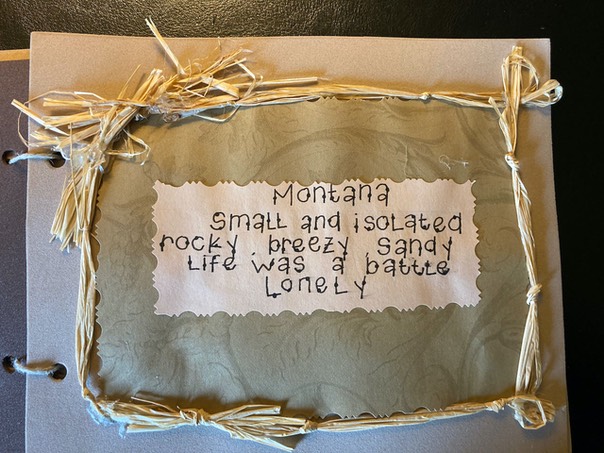 Montana
Small and isolated
rocky breezy Sandy
Life was a battle
Lonely